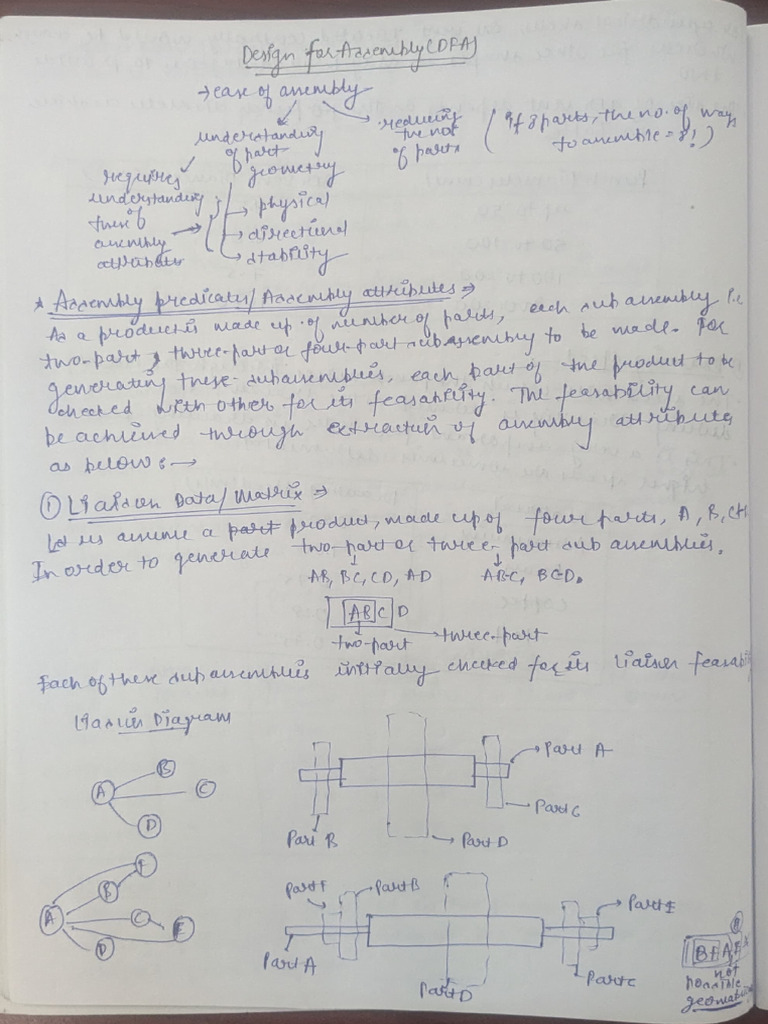 Design for Assembly (DFA)
→ ease of assembly
understanding
of part
geometry
reducing
the no of
of parts
(If 8 parts, the no. of ways
to assemble = 8!)
requires
understanding
these of
assembly
attributes
→ physical
→ directional
→ stability
* Assembly predicates/Assembly attributes ⇒
As a product is made up of number of parts, each subassembly i.e
two-part, three-part or four-part subassembly to be made. For
generating these subassemblies, each part of the product to be
checked with other for its feasability. The feasability can
be achieved through extraction of assembly attributes
as below : →
① Liaison Data/Matrix ⇒
Let us assume a part product, made up of four parts, A, B, C
In order to generate two-part or three-part sub assemblies.
AB, BC, CD, AD ABC, BCD.
ABCD
two-part three-part
Each of these subassemblies initially checked for its liaison feasabi
Liaison Diagram
A B C D
Part A
Part B
Part C
Part D
A B C D E F
Part F
Part B
Part E
Part A
Part D
Part C
not
possible